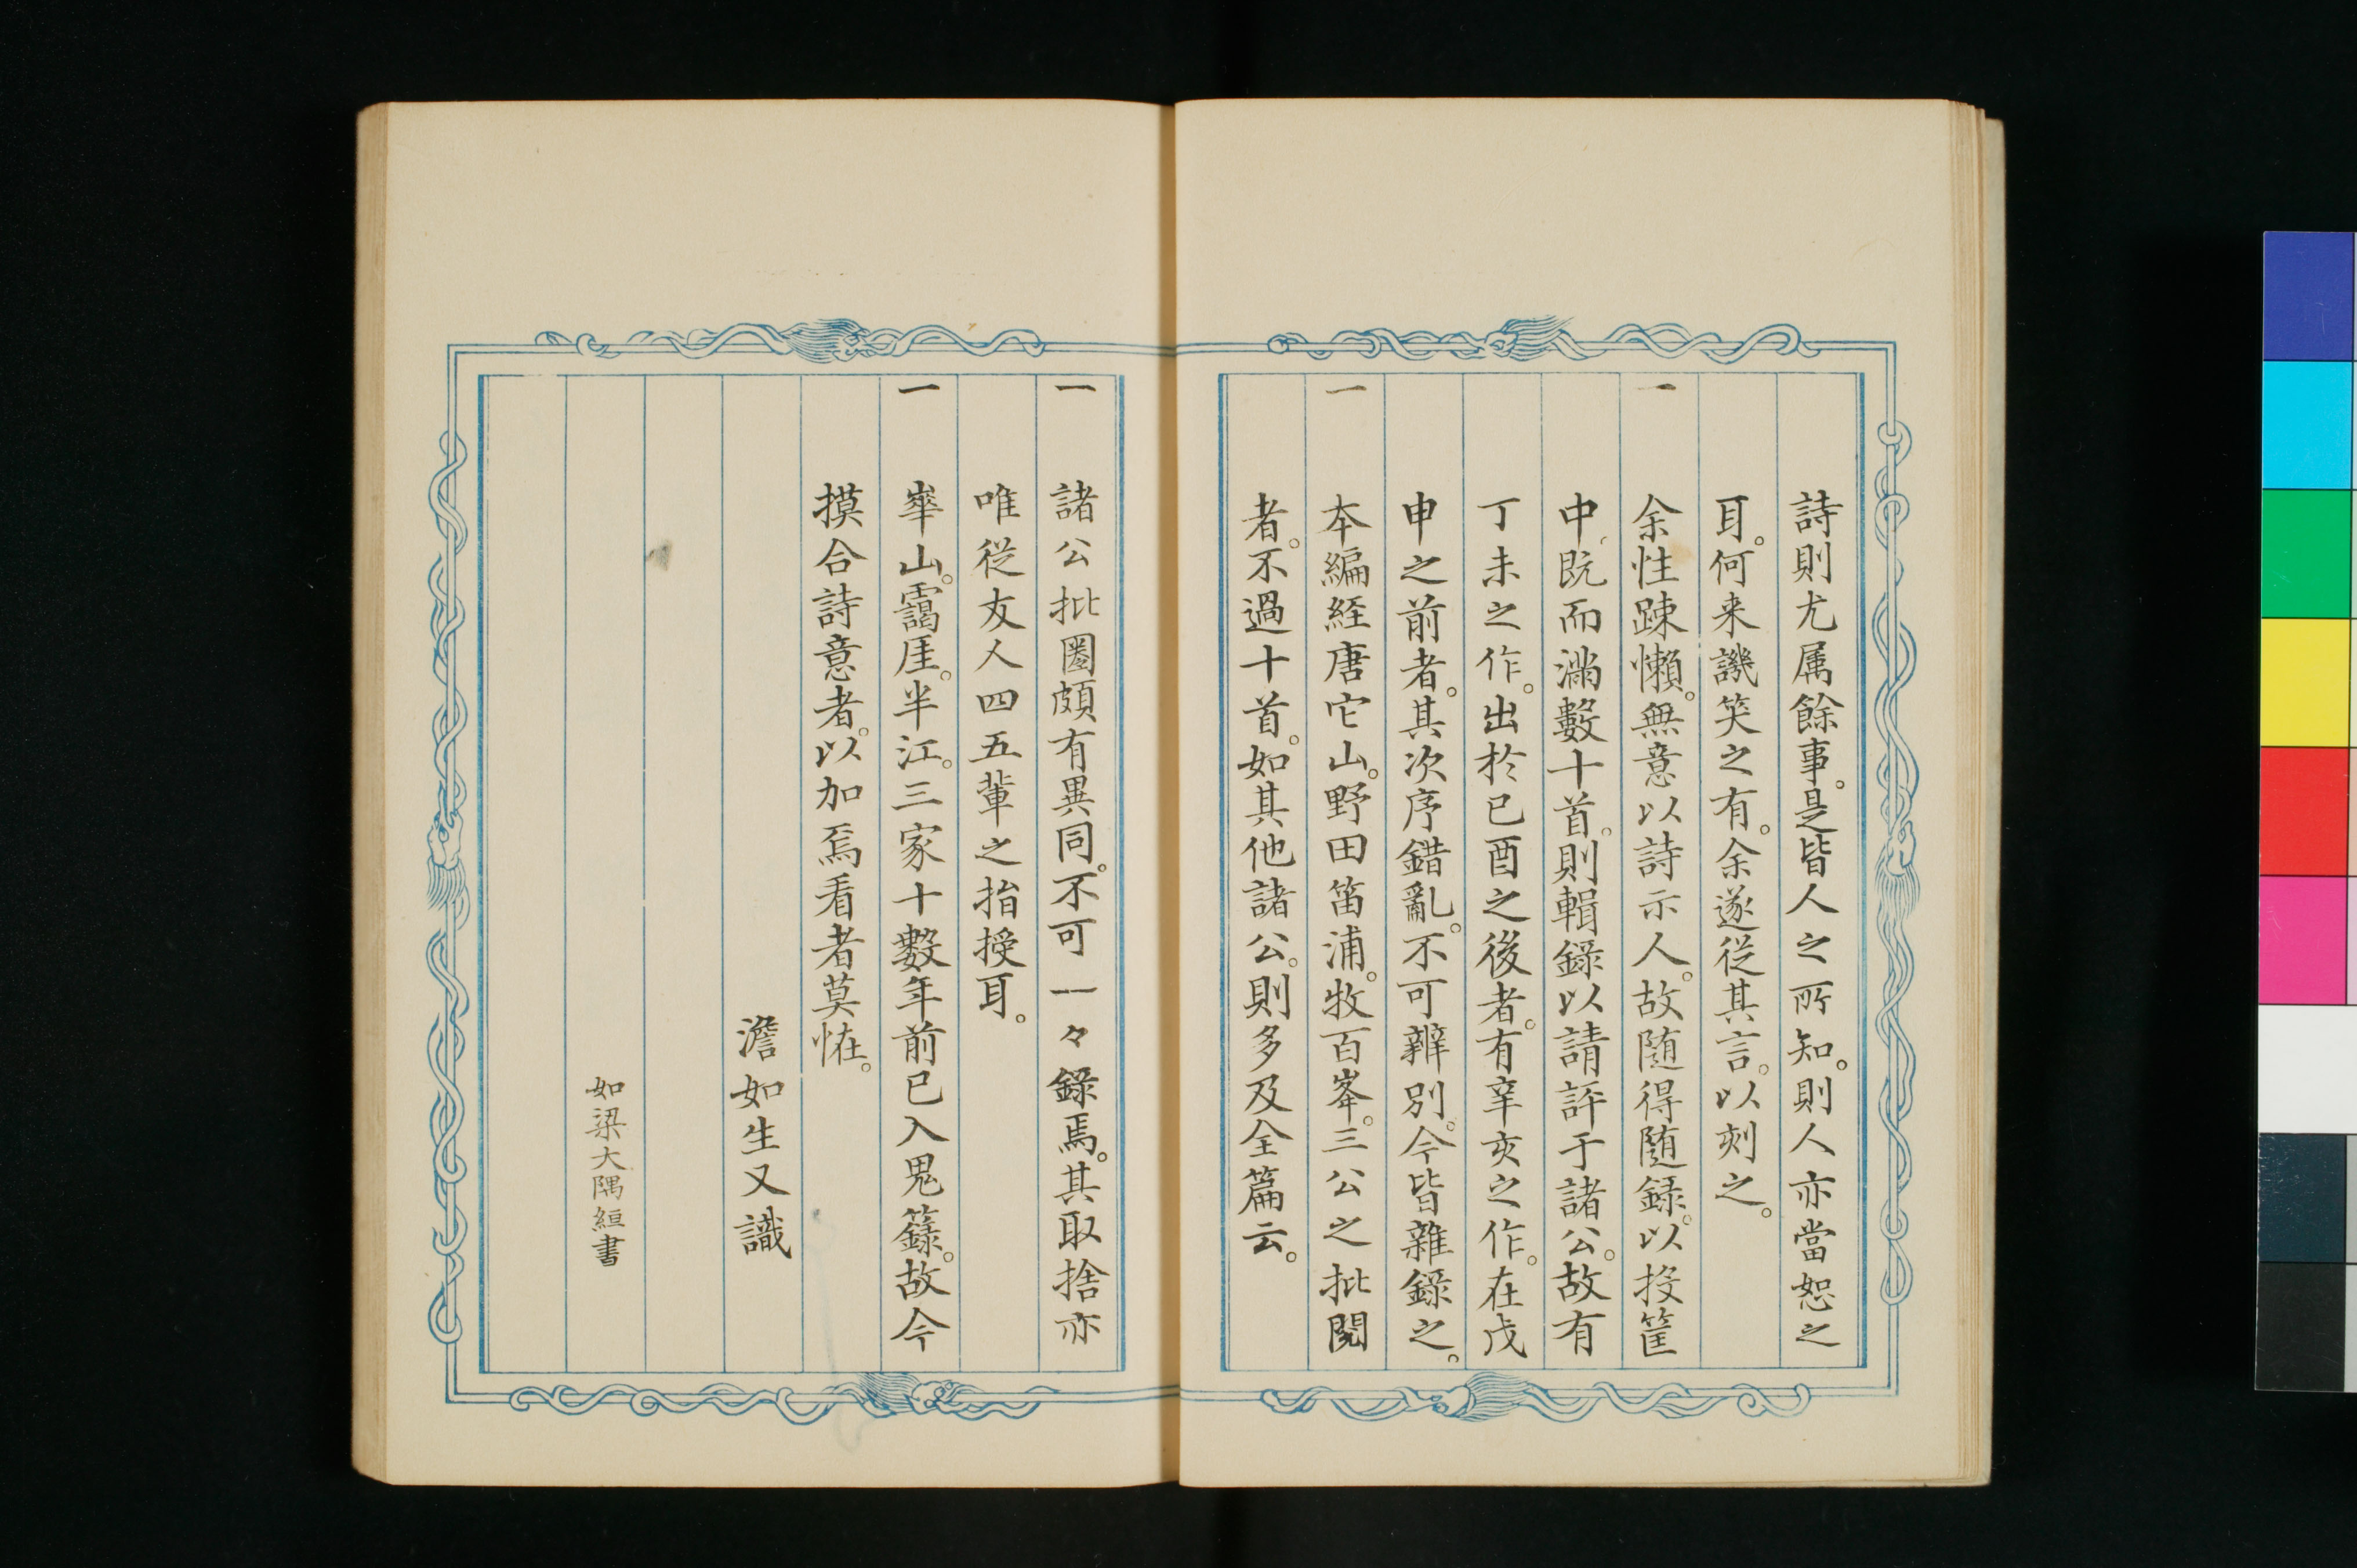 詩則尤属餘事。是皆人之所知。則人亦當恕之
耳。何来譏笑之有。余遂従其言。以刻之。
一 余性踈懶。無意以詩示人。故随得随録。以投筐
中、既而満數十首。則輯録以請評于諸公。故有
丁未之作。出於已酉之後者。有辛亥之作。在戊
申之前者。其次序錯亂。不可辨別。今皆雜録之。
一 本編経唐宅山。野田笛浦。牧百峯。三公之批閲
者。不過十首。如其他諸公。則多及全篇云。
一 諸公批圏頗有異同。不可一々録焉。其取捨亦
唯従友人四五輩之指授耳。
一 崋山。靄厓。半江。三家十數年前已入鬼籙。故今
摸合詩意者。以加焉看者莫恠。
澹如生又識
如梁大隅絙書